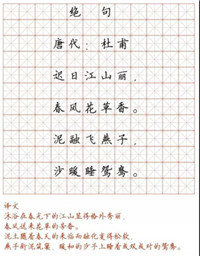 绝句
唐代：杜甫
迟日江山丽，
春风花草香。
泥融飞燕子，
沙暖睡鸳鸯。
译文
沐浴在春光下的江山显得格外秀丽，
春风送来花草的芳香。
泥土随着春天的来临而融化变得松软，
燕子衔泥筑巢，暖和的沙子上睡着成双成对的鸳鸯。